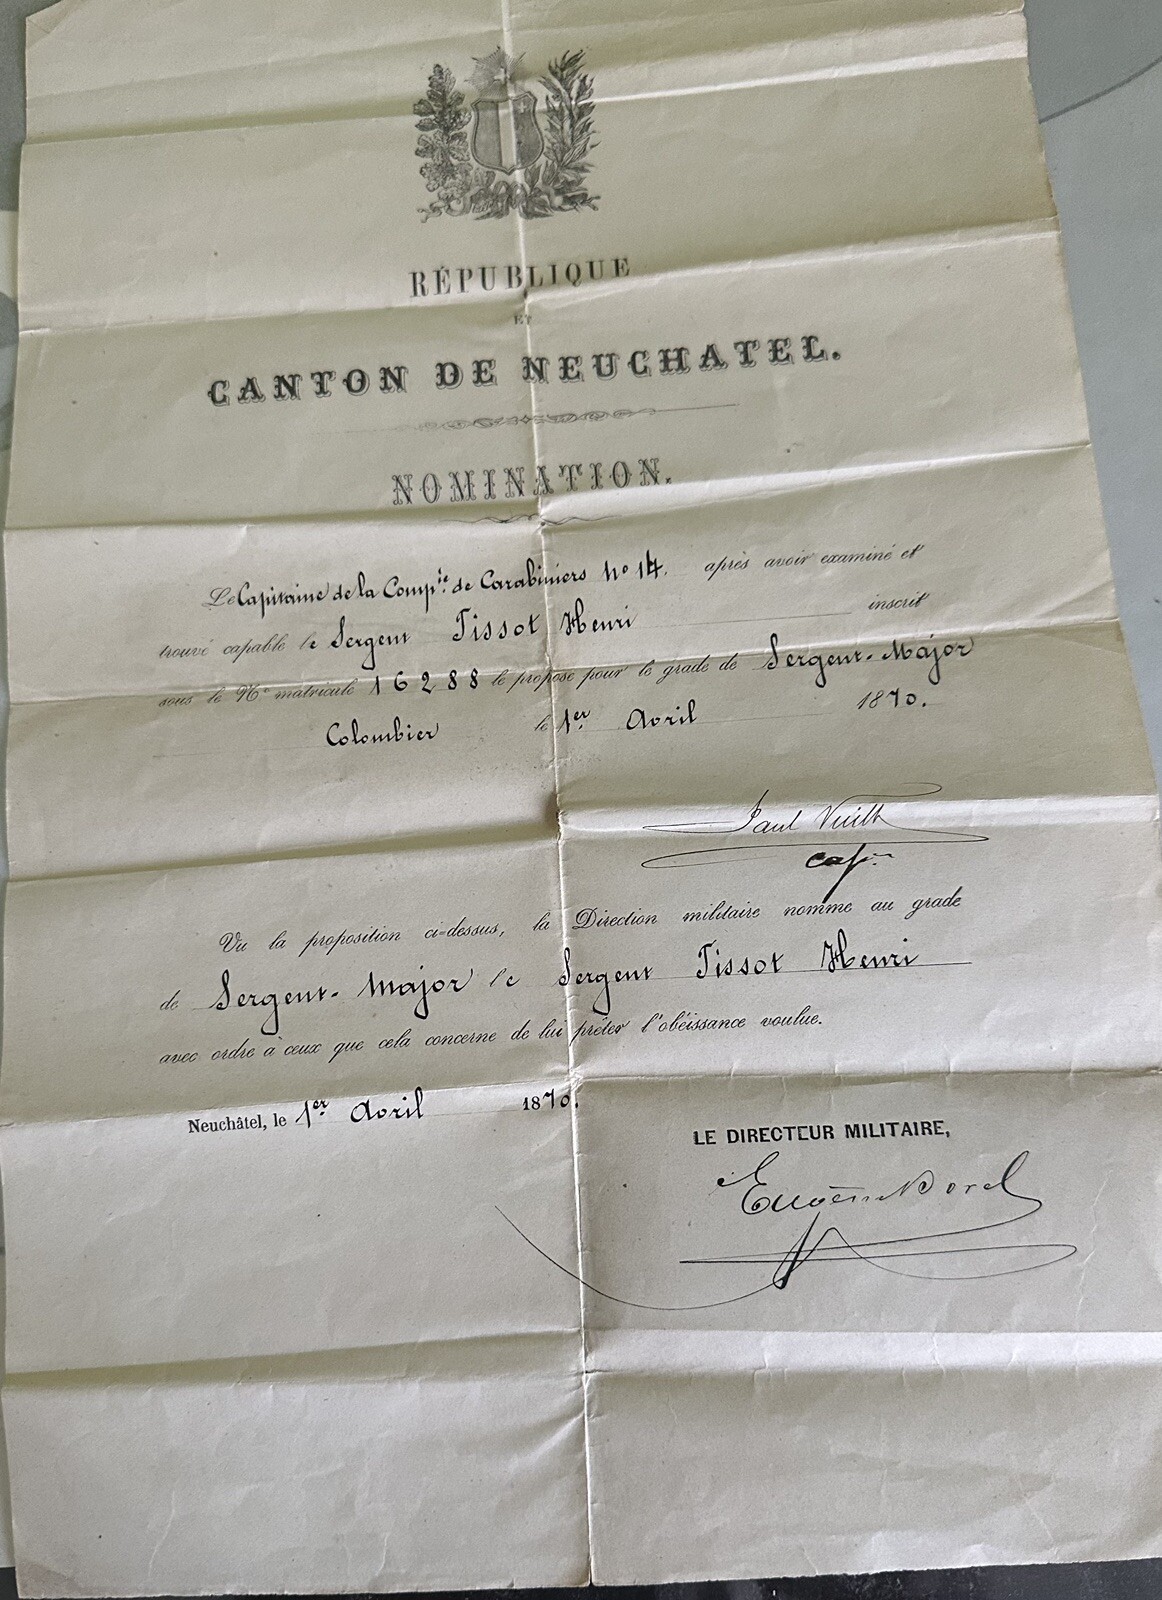 RÉPUBLIQUE
ET
CANTON DE NEUCHATEL.
NOMINATION.
Le Capitaine de la Comp.ie de Carabiniers No 14. après avoir examiné et
trouvé capable le Sergent Tissot Henri inscrit
sous le No matricule 16288 le propose pour le grade de Sergent-Major
Colombier le 1er Avril 1870.
Paul
cap.
Vu la proposition ci-dessus, la Direction militaire nomme au grade
de Sergent-Major le Sergent Tissot Henri
avec ordre à ceux que cela concerne de lui prêter l'obéissance voulue.
Neuchâtel, le 1er Avril 1870.
LE DIRECTEUR MILITAIRE,
Eugène Borel